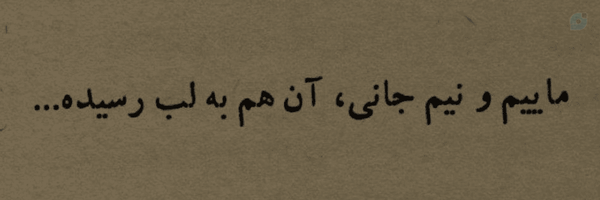 ماییم و نیم جانی، آن هم به لب رسیده...